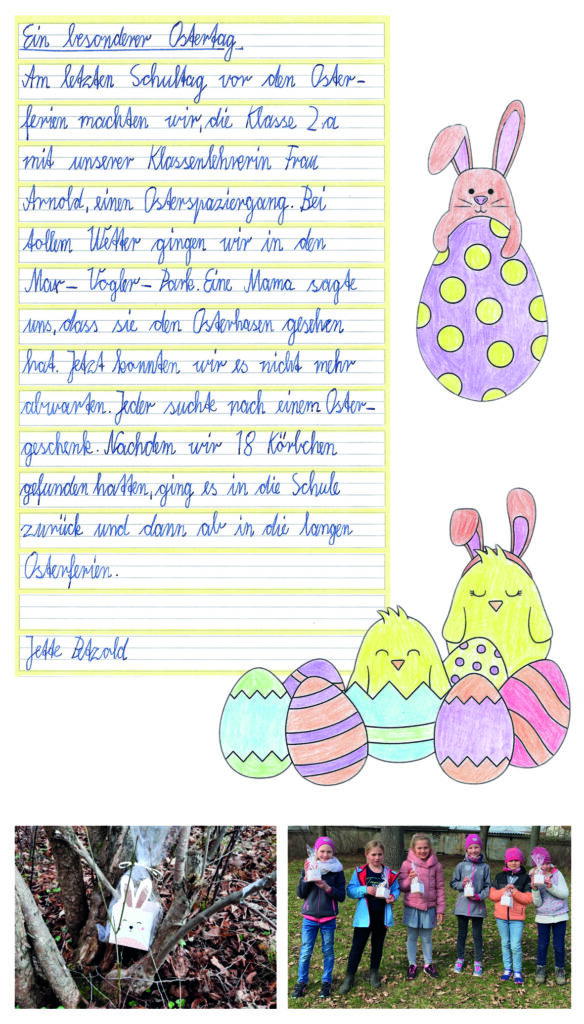 Ein besonderer Ostertag
Am letzten Schultag vor den Oster-
ferien machten wir, die Klasse 2.a
mit unserer Klassenlehrerin Frau
Arnold, einen Osterspaziergang. Bei
tollem Wetter gingen wir in den
Max-Vogler-Park. Eine Mama sagte
uns, dass sie den Osterhasen gesehen
hat. Jetzt konnten wir es nicht mehr
abwarten. Jeder suchte nach einem Oster-
geschenk. Nachdem wir 18 Körbchen
gefunden hatten, ging es in die Schule
zurück und dann ab in die langen
Osterferien.
Jette Petzold